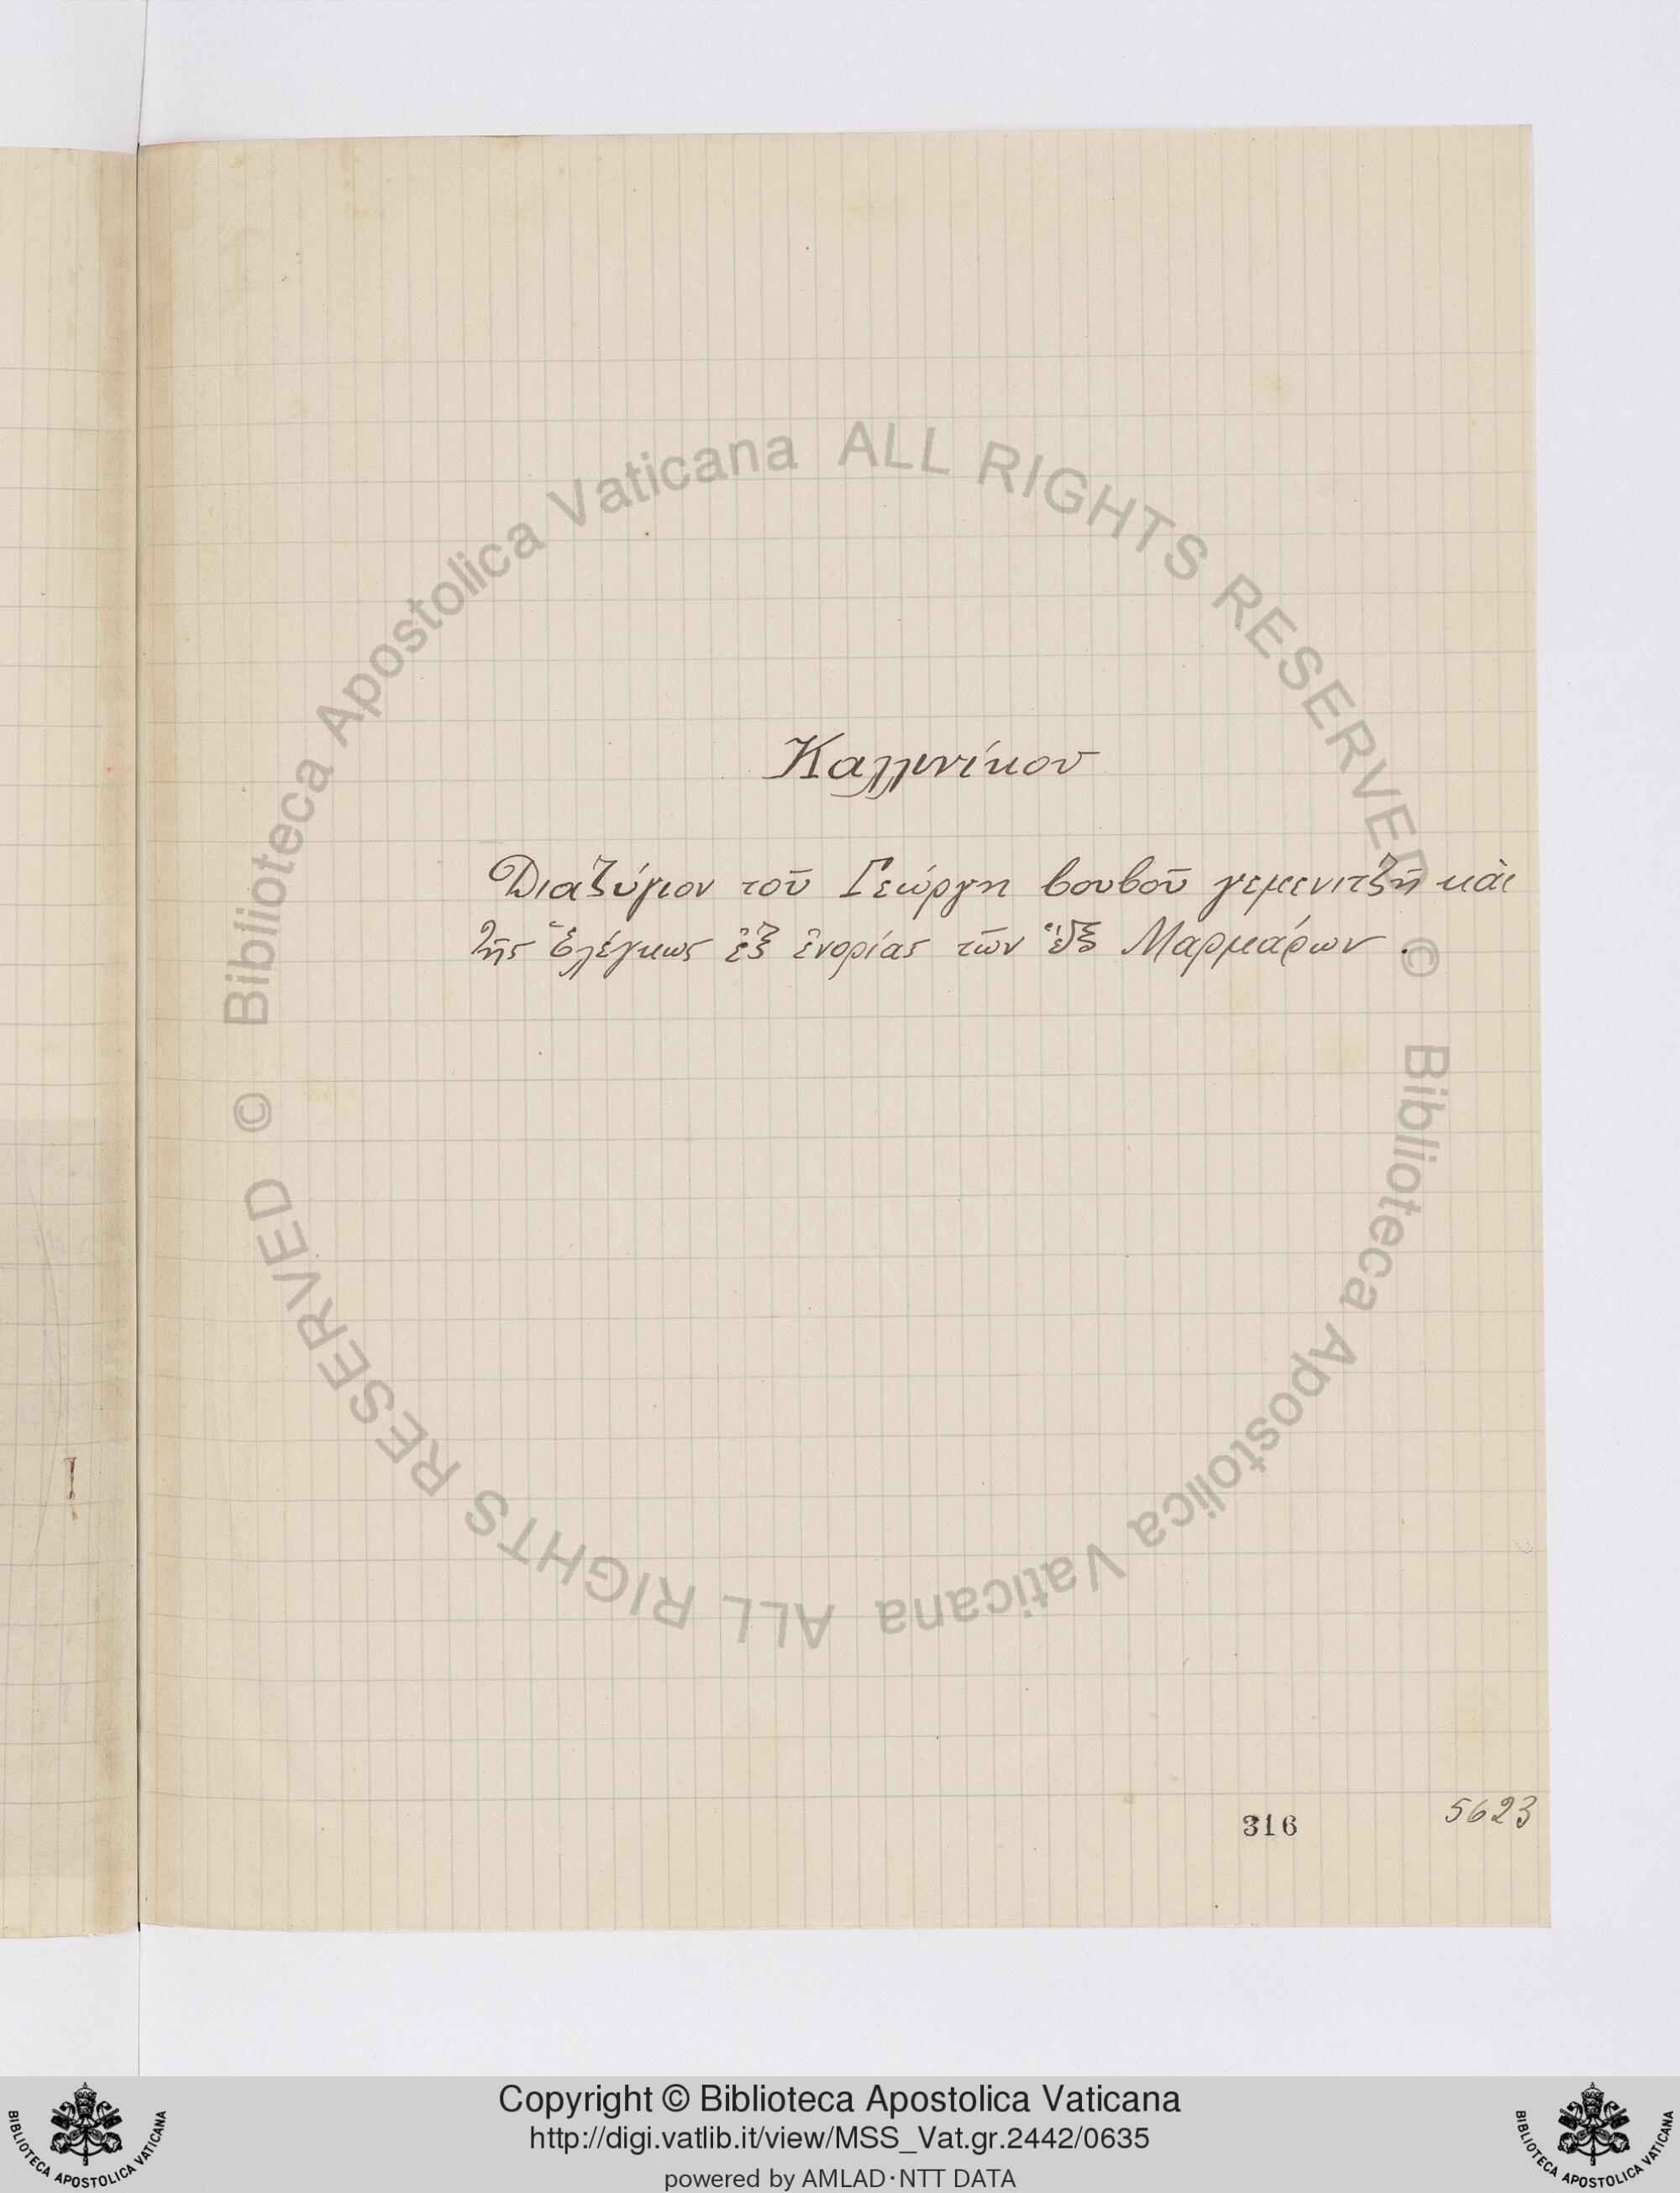 Καλλινίκου
Διαζύγιον τοῦ Γεώργη βουβοῦ γεμενιτζῆ καὶ
τῆς Ἑλέγκως ἐξ ἐνορίας τῶν ἓξ Μαρμάρων .
316
5623
Biblioteca Apostolica Vaticana ALL RIGHTS RESERVED ©
Biblioteca Apostolica Vaticana ALL RIGHTS RESERVED ©
Copyright © Biblioteca Apostolica Vaticana
http://digi.vatlib.it/view/MSS_Vat.gr.2442/0635
powered by AMLAD·NTT DATA
BIBLIOTECA APOSTOLICA VATICANA
BIBLIOTECA APOSTOLICA VATICANA